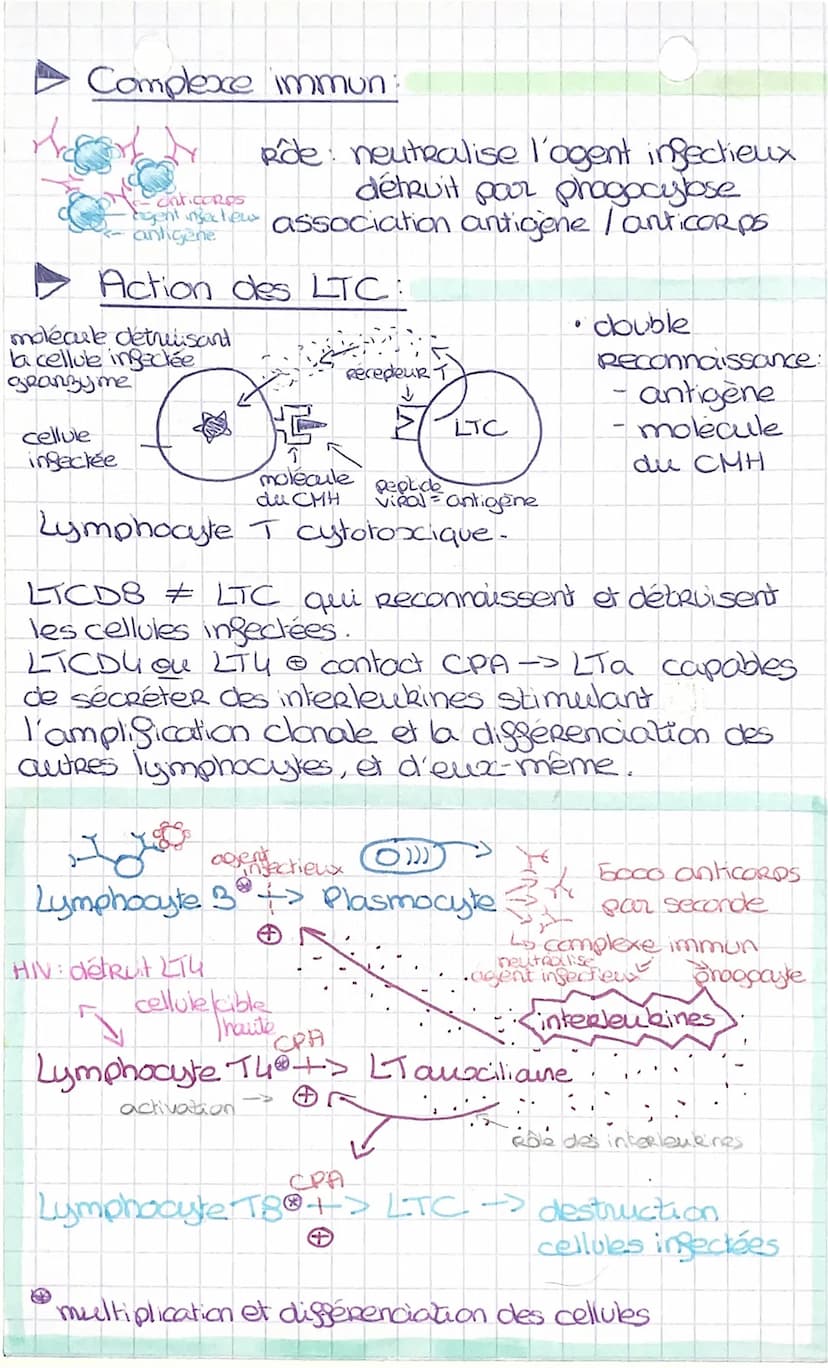 Complexe immun:
Rôle: neutralise l'agent infectieux
détruit par phagocytose
association antigène / anticorps
anticorps
agent infectieux
antigène
Action des LTC:
molécule détruisant
la cellule infectée
granzyme
récepteur T
cellule
infectée
LTC
molécule
du CMH
peptide
viral = antigène
• double
reconnaissance:
- antigène
- molécule
du CMH
Lymphocyte T cytotoxique.
LTCD8 ≠ LTC qui reconnaissent et détruisent
les cellules infectées.
LTCD4 ou LT4 ⊕ contact CPA -> LTa capables
de sécréter des interleukines stimulant
l'amplification clonale et la différenciation des
autres lymphocytes, et d'eux-même.
agent
infectieux
Lymphocyte B + -> Plasmocyte
⊕
5000 anticorps
par seconde
↳ complexe immun
neutralise
agent infectieux
phagocyte
HIV: détruit LT4
cellule cible
haute
interleukines
CPA
Lymphocyte T4 + -> LT auxiliaire
activation ->
⊕
rôle des interleukines
CPA
Lymphocyte T8 + -> LTC -> destruction
cellules infectées
⊕
* multiplication et différenciation des cellules